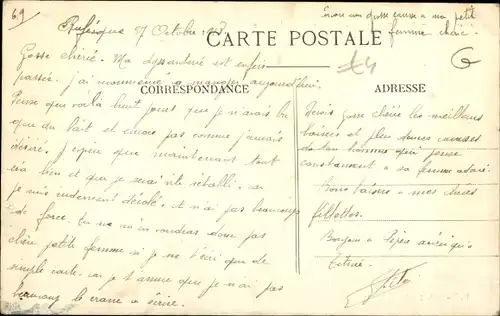 69
Rufisque 7 Octobre
Envoie une grosse caresse a ma petit
femme chérie
CARTE POSTALE
G
CORRESPONDANCE
ADRESSE
Gosse chérie. Ma dyssenterie est enfin
passée. j'ai commencé a manger aujourd'hui.
Pense que voilà huit jours que je n'avais bu
que du lait et encore pas comme j'aurais
désiré. J'espère que maintenant tout
ira bien et que je serai vite rétabli. car
je suis rudement démoli. et n'ai pas beaucoup
de force. Tu ne m'en voudras donc pas
chère petite femme si je ne t'écris que de
simple carte. car je t'assure que je n'ai pas
beaucoup le crane a écrire.
Reçois gosse chérie les meilleurs
baisers et plus douces caresses
de ton homme qui pense
constamment a sa femme adorée.
Bons baisers a mes chères
fillettes.
Bonjour a Pépée ainsi qu'a
Titine.